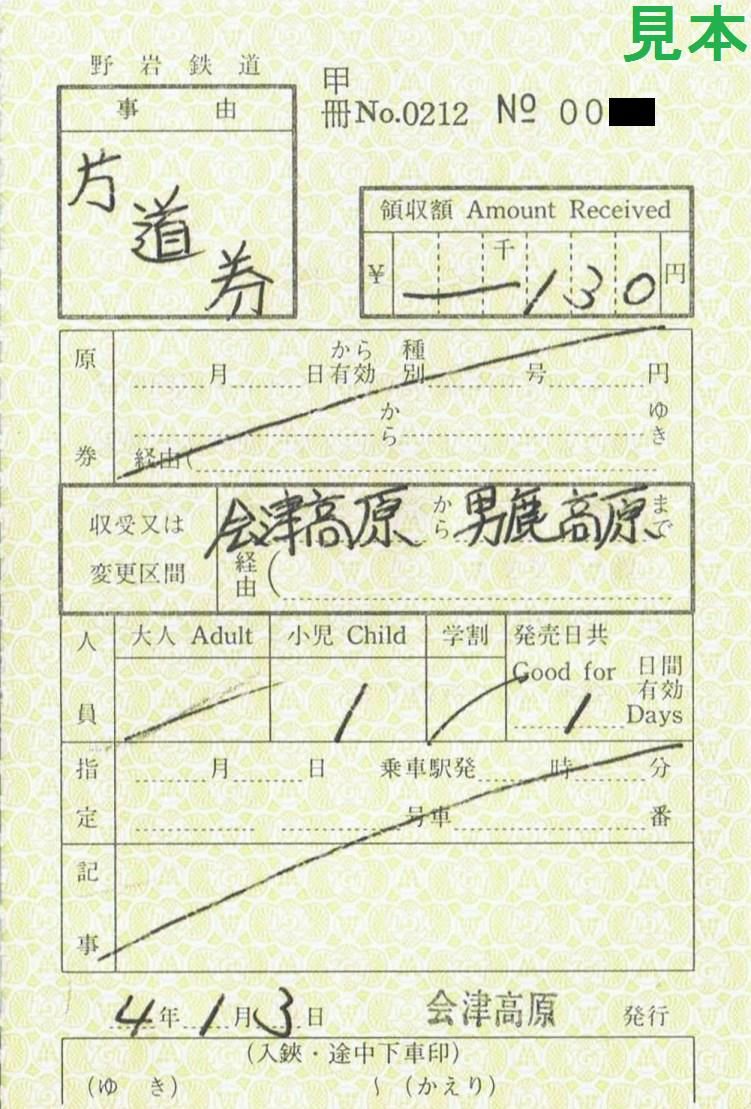 見本
野岩鉄道
甲
冊No.0212 № 00
事由
片道券
領収額 Amount Received
千
¥ 130 円
原券
月 日から有効 種別 号 円
から ゆき
経由(
収受又は変更区間
会津高原から男鹿高原まで
経由(
人員
大人 Adult 小児 Child 学割 発売日共
Good for 日間有効
1 1 Days
指定
月 日 乗車駅発 時 分
号車 番
記事
4年1月3日 会津高原 発行
(入鋏・途中下車印)
(ゆき) ~ (かえり)